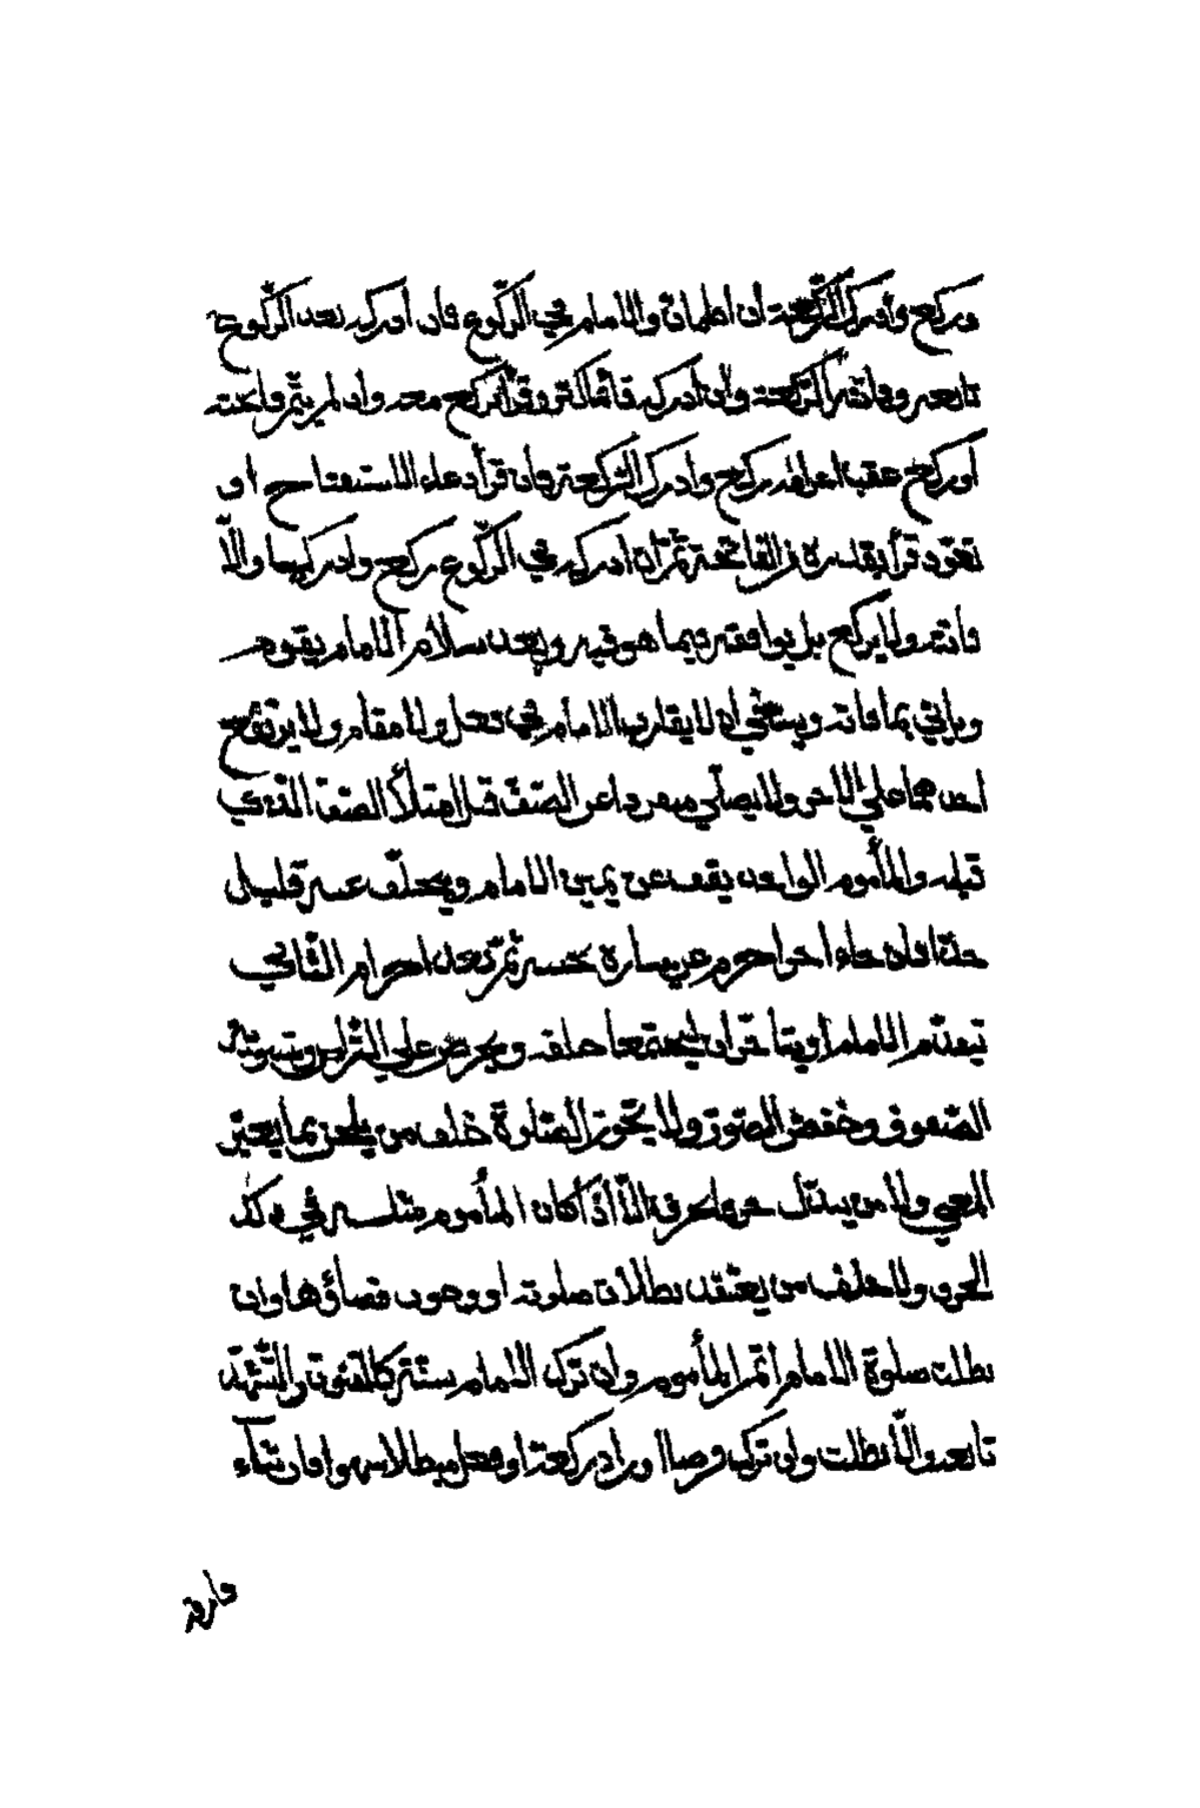 وركع وأدرك الركعة ان اطمان والامام في الركوع فان أدركه بعد الركوع
تابعه وفاتته الركعة وان ادركه قائما كبر وقرأ وركع معه وان لم يتم فاتحته
أو ركع عقب احرامه ركع وادرك الركعة وان قرأ دعاء الاستفتاح او
تعوّذ قرأ بقدره من الفاتحة ثم ان ادركه في الركوع ركع وادركها والّا
فاتته ولا يركع بل يوافقه فيما هو فيه وبعد سلام الامام يقوم
ويأتي بما فاته وينبغي ان لا يقارب الامام في فعل ولا مقام ولا يرتفع
احدهما على الاخر ولا يصلّي منفردا عن الصفّ قبل امتلأ الصفّ الذي
قبله والمأموم الواحد يقف عن يمين الامام ويتخلّف عنه قليل
حذا فان جاء اخر احرم عن يساره ثمّ بعد احرام الثّاني
يتقدّم الامام أو يتأخّران ليجتمعا خلفه ويحرص على التّراص وتسوية
الصفوف وخفض الصوت ولا يجوز الصّلوة خلف من يلحن بما يغيّر
المعني ولا من يبدّل حرفا بحرف الّا اذا كان المأموم مثله في ذلك
الحرف ولا خلف من يعتقد بطلان صلوته او وجوب قضاؤها وان
بطلت صلوة الامام اتمّ المأموم وان ترك الامام سنّة كالقنوت والتّشهّد
تابعه والّا بطلت وان ترك فرضا أو زاد ركعة او فعل مبطلا سهوا فان شآء
فارقه